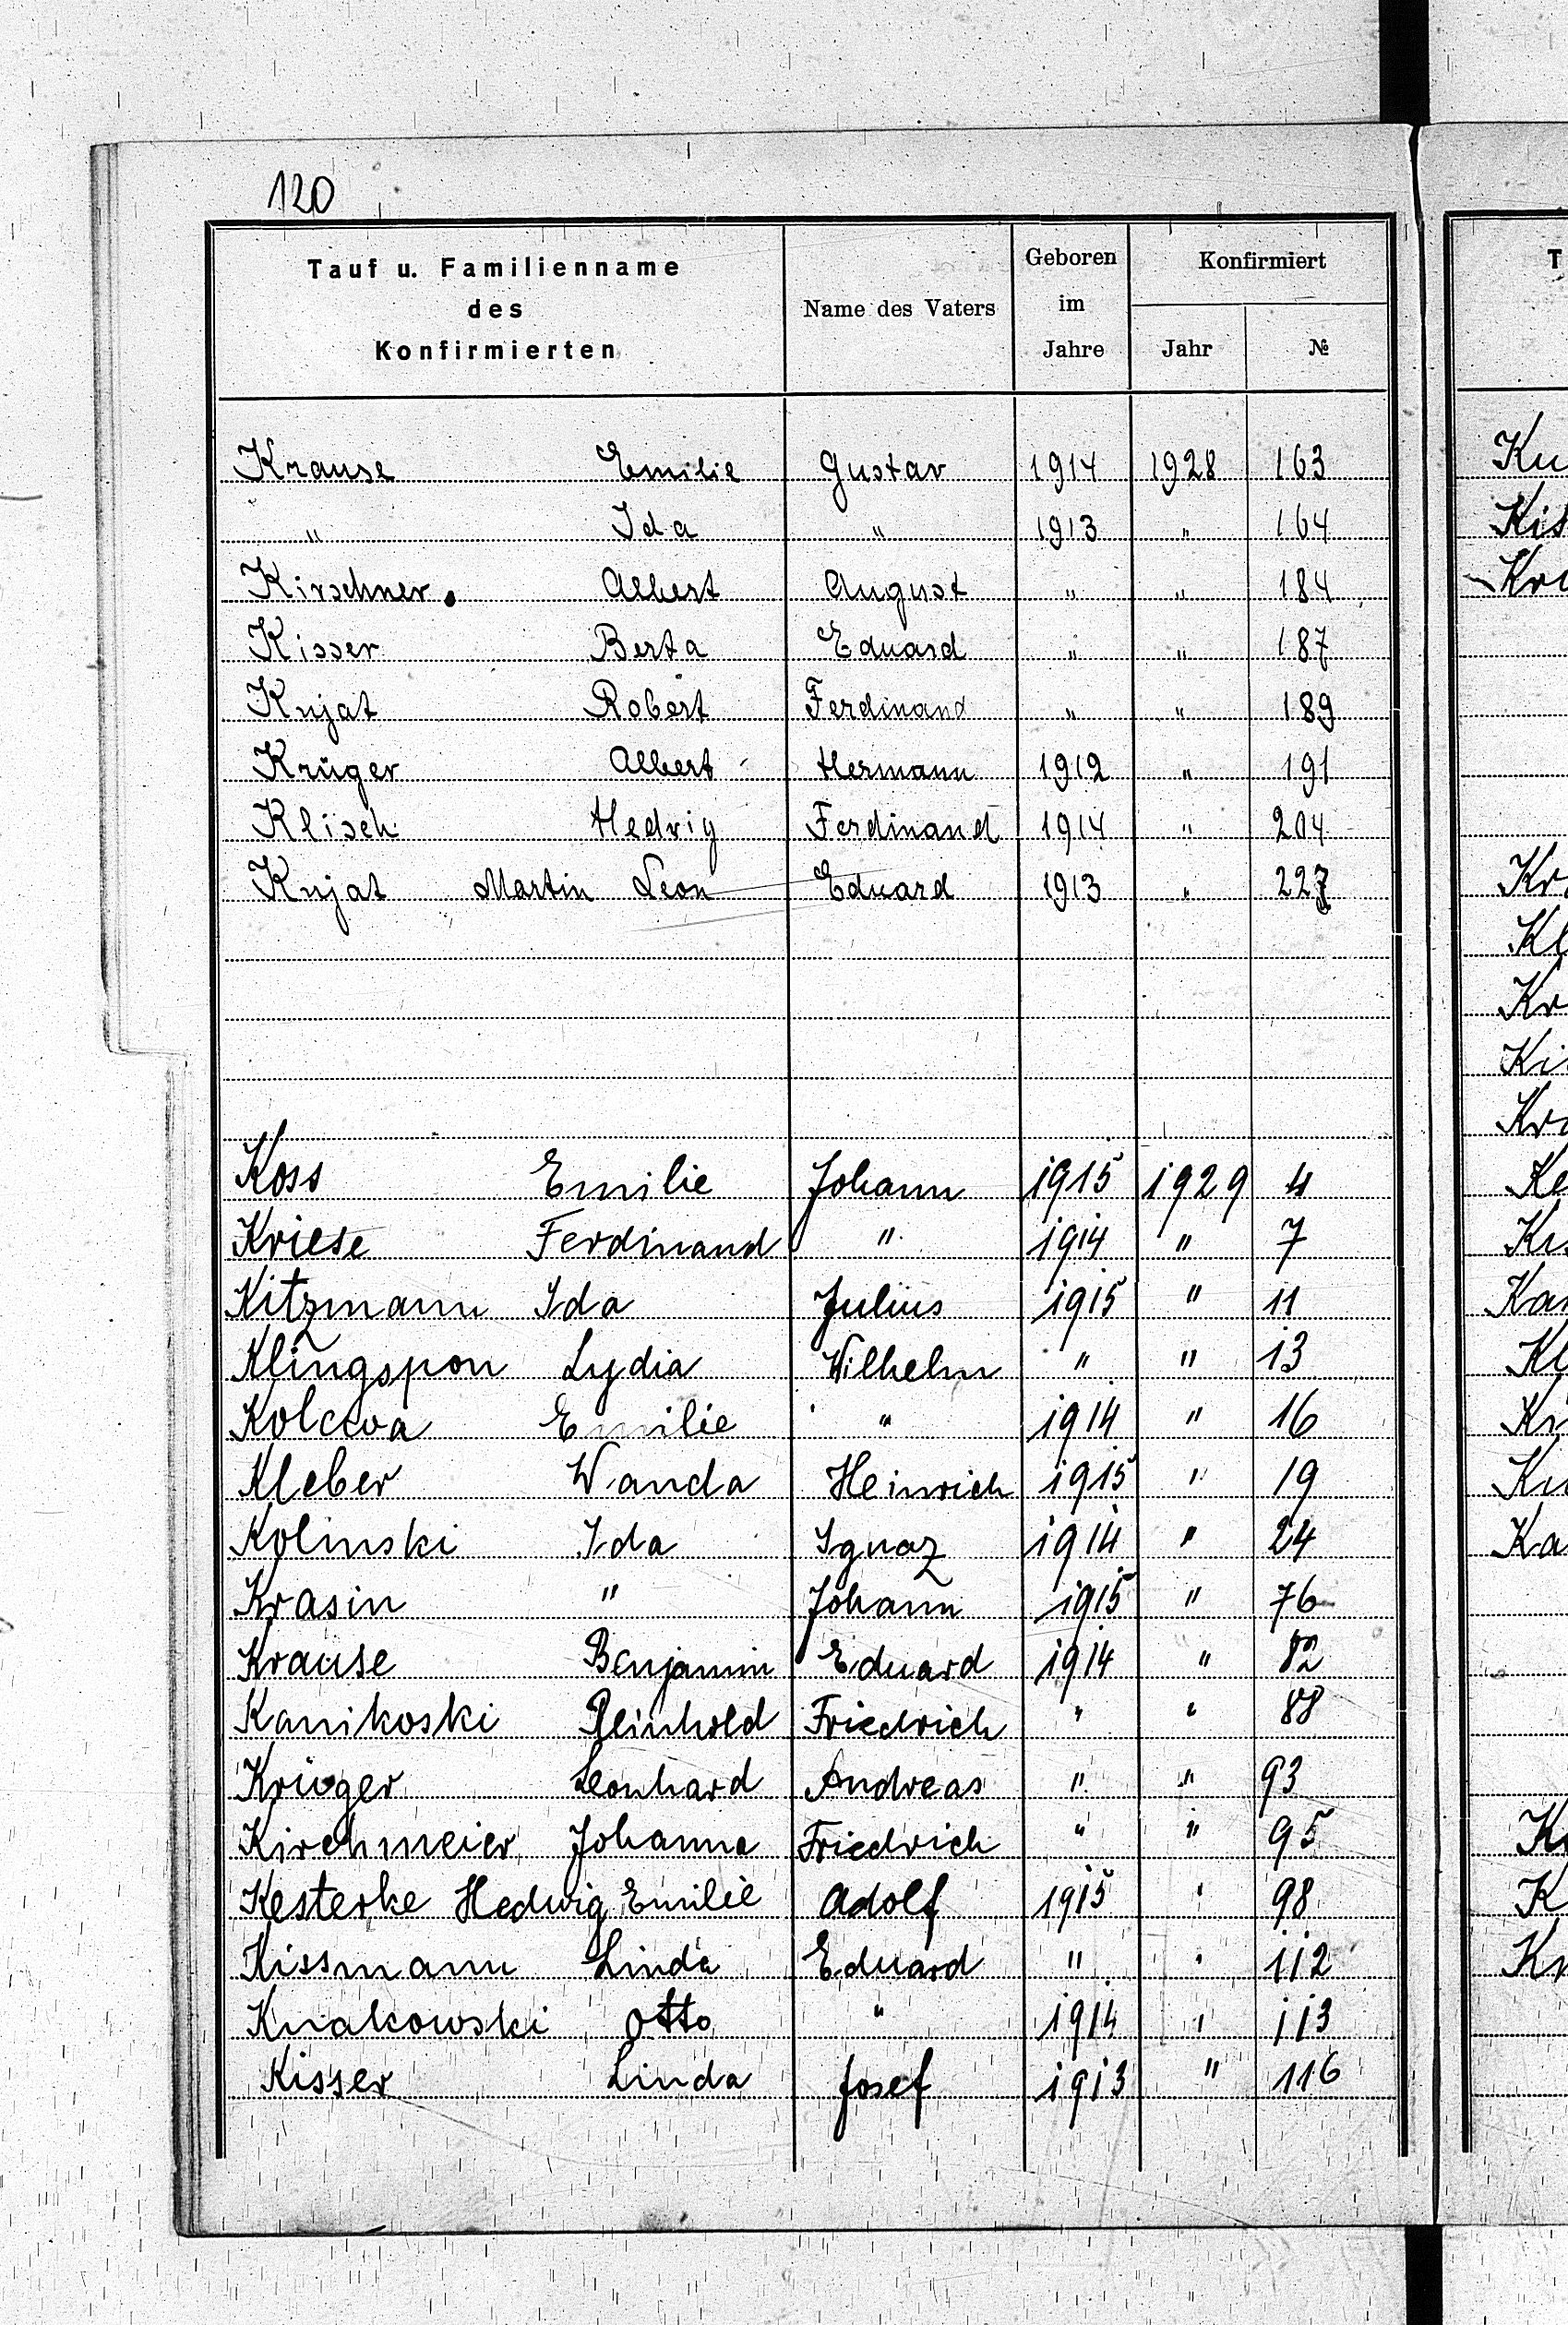 120
Tauf u. Familienname des Konfirmierten Name des Vaters Geboren im Jahre Konfirmiert Jahr №
Krause Emilie Gustav 1914 1928 163
" Ida " 1913 " 164
Kirschner Albert August " " 184
Kisser Berta Eduard " " 187
Kujat Robert Ferdinand " " 189
Krüger Albert Hermann 1912 " 191
Klisch Hedvig Ferdinand 1914 " 204
Kujat Martin Leon Eduard 1913 " 227
Koss Emilie Johann 1915 1929 4
Kriese Ferdinand " 1914 " 7
Kitzmann Ida Julius 1915 " 11
Klingspon Lydia Wilhelm " " 13
Kolewa Emilie " 1914 " 16
Kleber Wanda Heinrich 1915 " 19
Kolinski Ida Ignaz 1914 " 24
Krasin " Johann 1915 " 76
Krause Benjamin Eduard 1914 " 82
Kanikoski Reinhold Friedrich " " 88
Krüger Leonhard Andreas " " 93
Kirchmeier Johanna Friedrich " " 95
Kesterke Hedwig Emilie Adolf 1915 " 98
Kissmann Linda Eduard " " 112
Kniakowski Otto " 1914 " 113
Kisser Linda Josef 1913 " 116
T
Ku
Kis
Kl
Kr
Ka